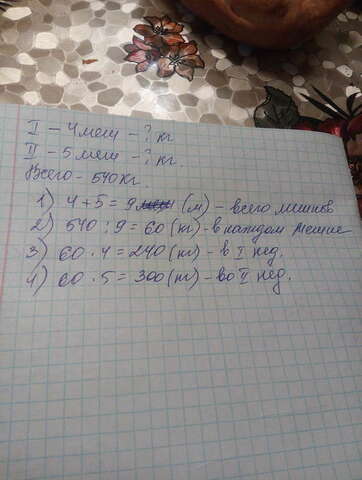 I - 4 меш - ? кг
II - 5 меш - ? кг
Всего - 540 кг.
1) 4 + 5 = 9 (м) - всего мешков
2) 540 : 9 = 60 (кг) - в каждом мешке
3) 60 · 4 = 240 (кг) - в I нед.
4) 60 · 5 = 300 (кг) - во II нед.